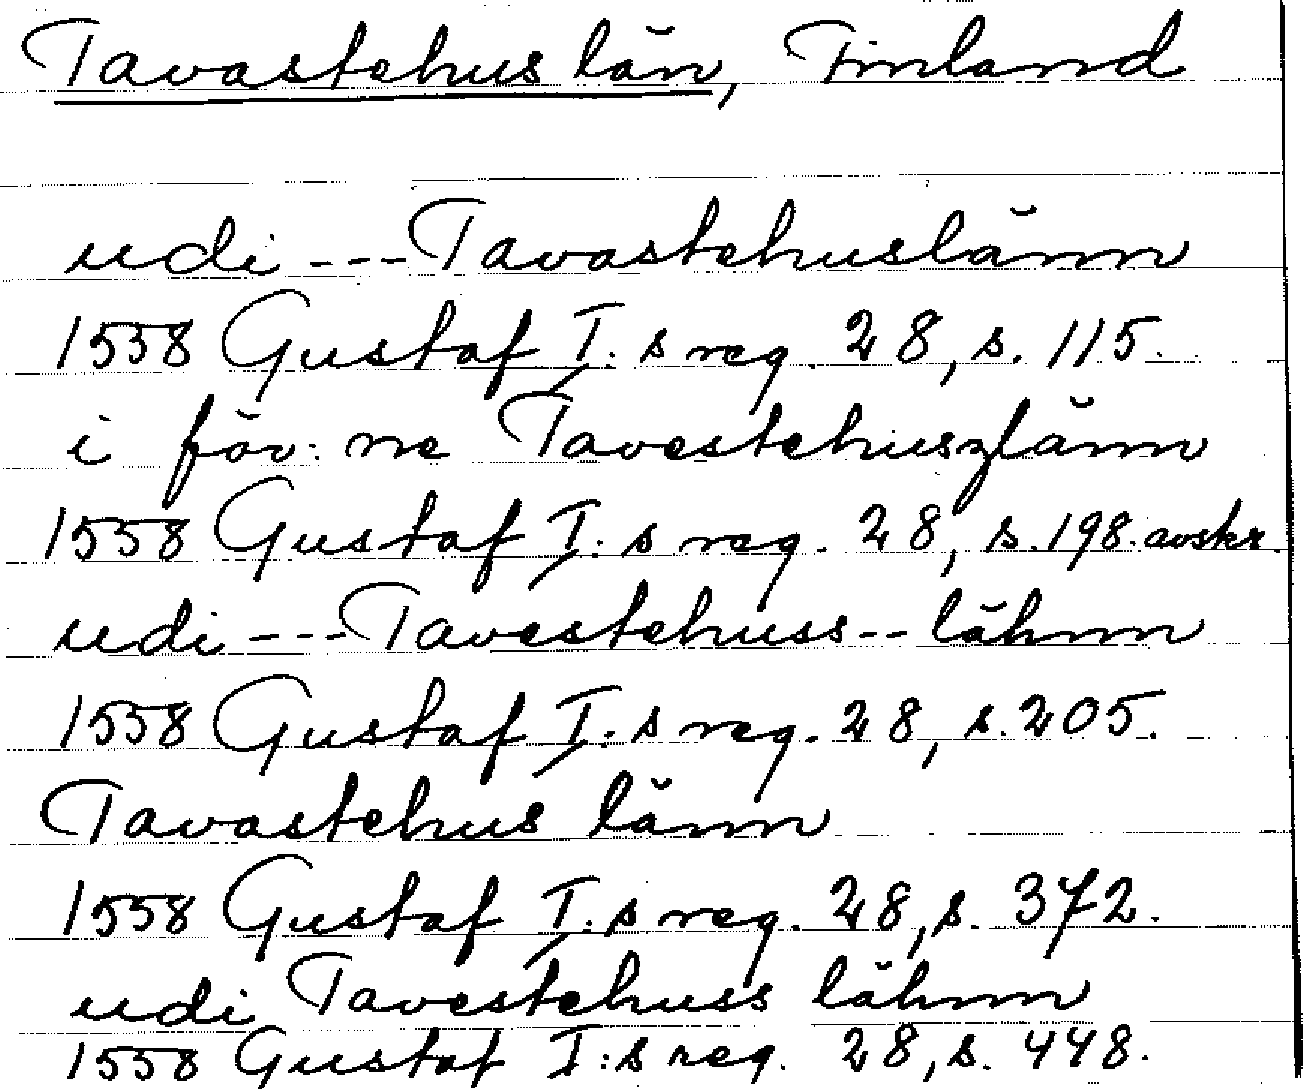 Tavastehus län, Finland
udi --- Tavastehuslänn
1558 Gustaf I:s reg. 28, s. 115.
i för:ne Tavestehuszlänn
1558 Gustaf I:s reg. 28, s. 198. avskr.
udi --- Tavestehuss -- lähnn
1558 Gustaf I:s reg. 28, s. 205.
Tavastehus länn
1558 Gustaf I:s reg. 28, s. 372.
udi Tavestehuss lähnn
1558 Gustaf I:s reg. 28, s. 448.